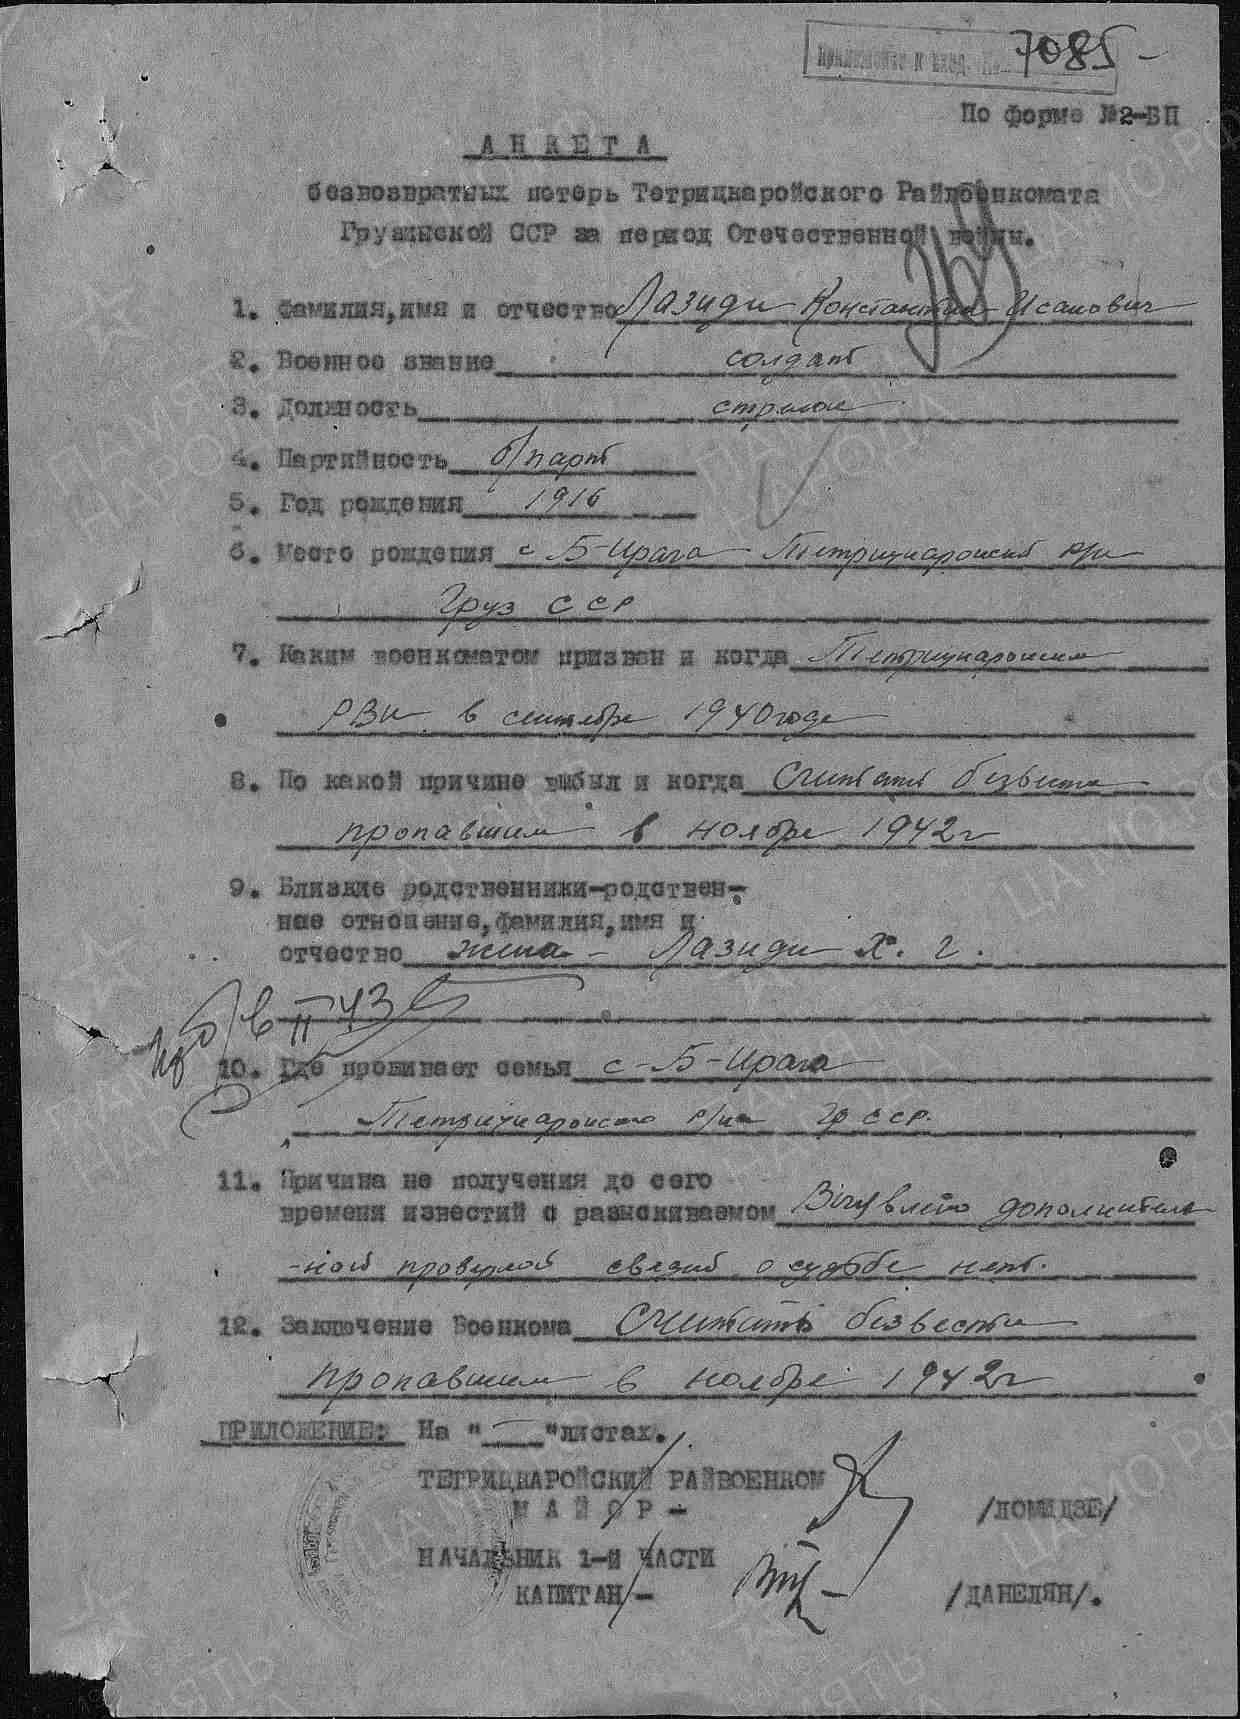 7085 -
По форме №2-БП
АНКЕТА
безвозвратных потерь Тетрицкаройского Райвоенкомата
Грузинской ССР за период Отечественной войны.
1. Фамилия, имя и отчество Лазиди Константин Исакович
2. Военное звание солдат
3. Должность стрелок
4. Партийность б/парт
5. Год рождения 1916
6. Место рождения с Б-Ирага Тетрицкаройский р/н
Груз ССР
7. Каким военкоматом призван и когда Тетрицкаройским
РВК в сентябре 1940 годе
8. По какой причине выбыл и когда Считать безвести
пропавшим в ноябре 1942г
9. Близкие родственники-родствен-
ное отношение, фамилия, имя и
отчество жена - Лазиди Х. Г.
II 43
10. Где проживает семья с-Б-Ирага
Тетрицкаройского р/на Гр ССР.
11. Причина не получения до сего
времени известий о разыскиваемом дополнитель
-ной проверкой сведий о судьбе нет.
12. Заключение Военкома Считать безвести
пропавшим в ноябре 1942г
ПРИЛОЖЕНИЕ: На "—" листах.
ТЕТРИЦКАРОЙСКИЙ РАЙВОЕНКОМ
МАЙОР - /ЛОМИДЗЕ/
НАЧАЛЬНИК 1-й ЧАСТИ
КАПИТАН - /ДАНЕЛЯН/.